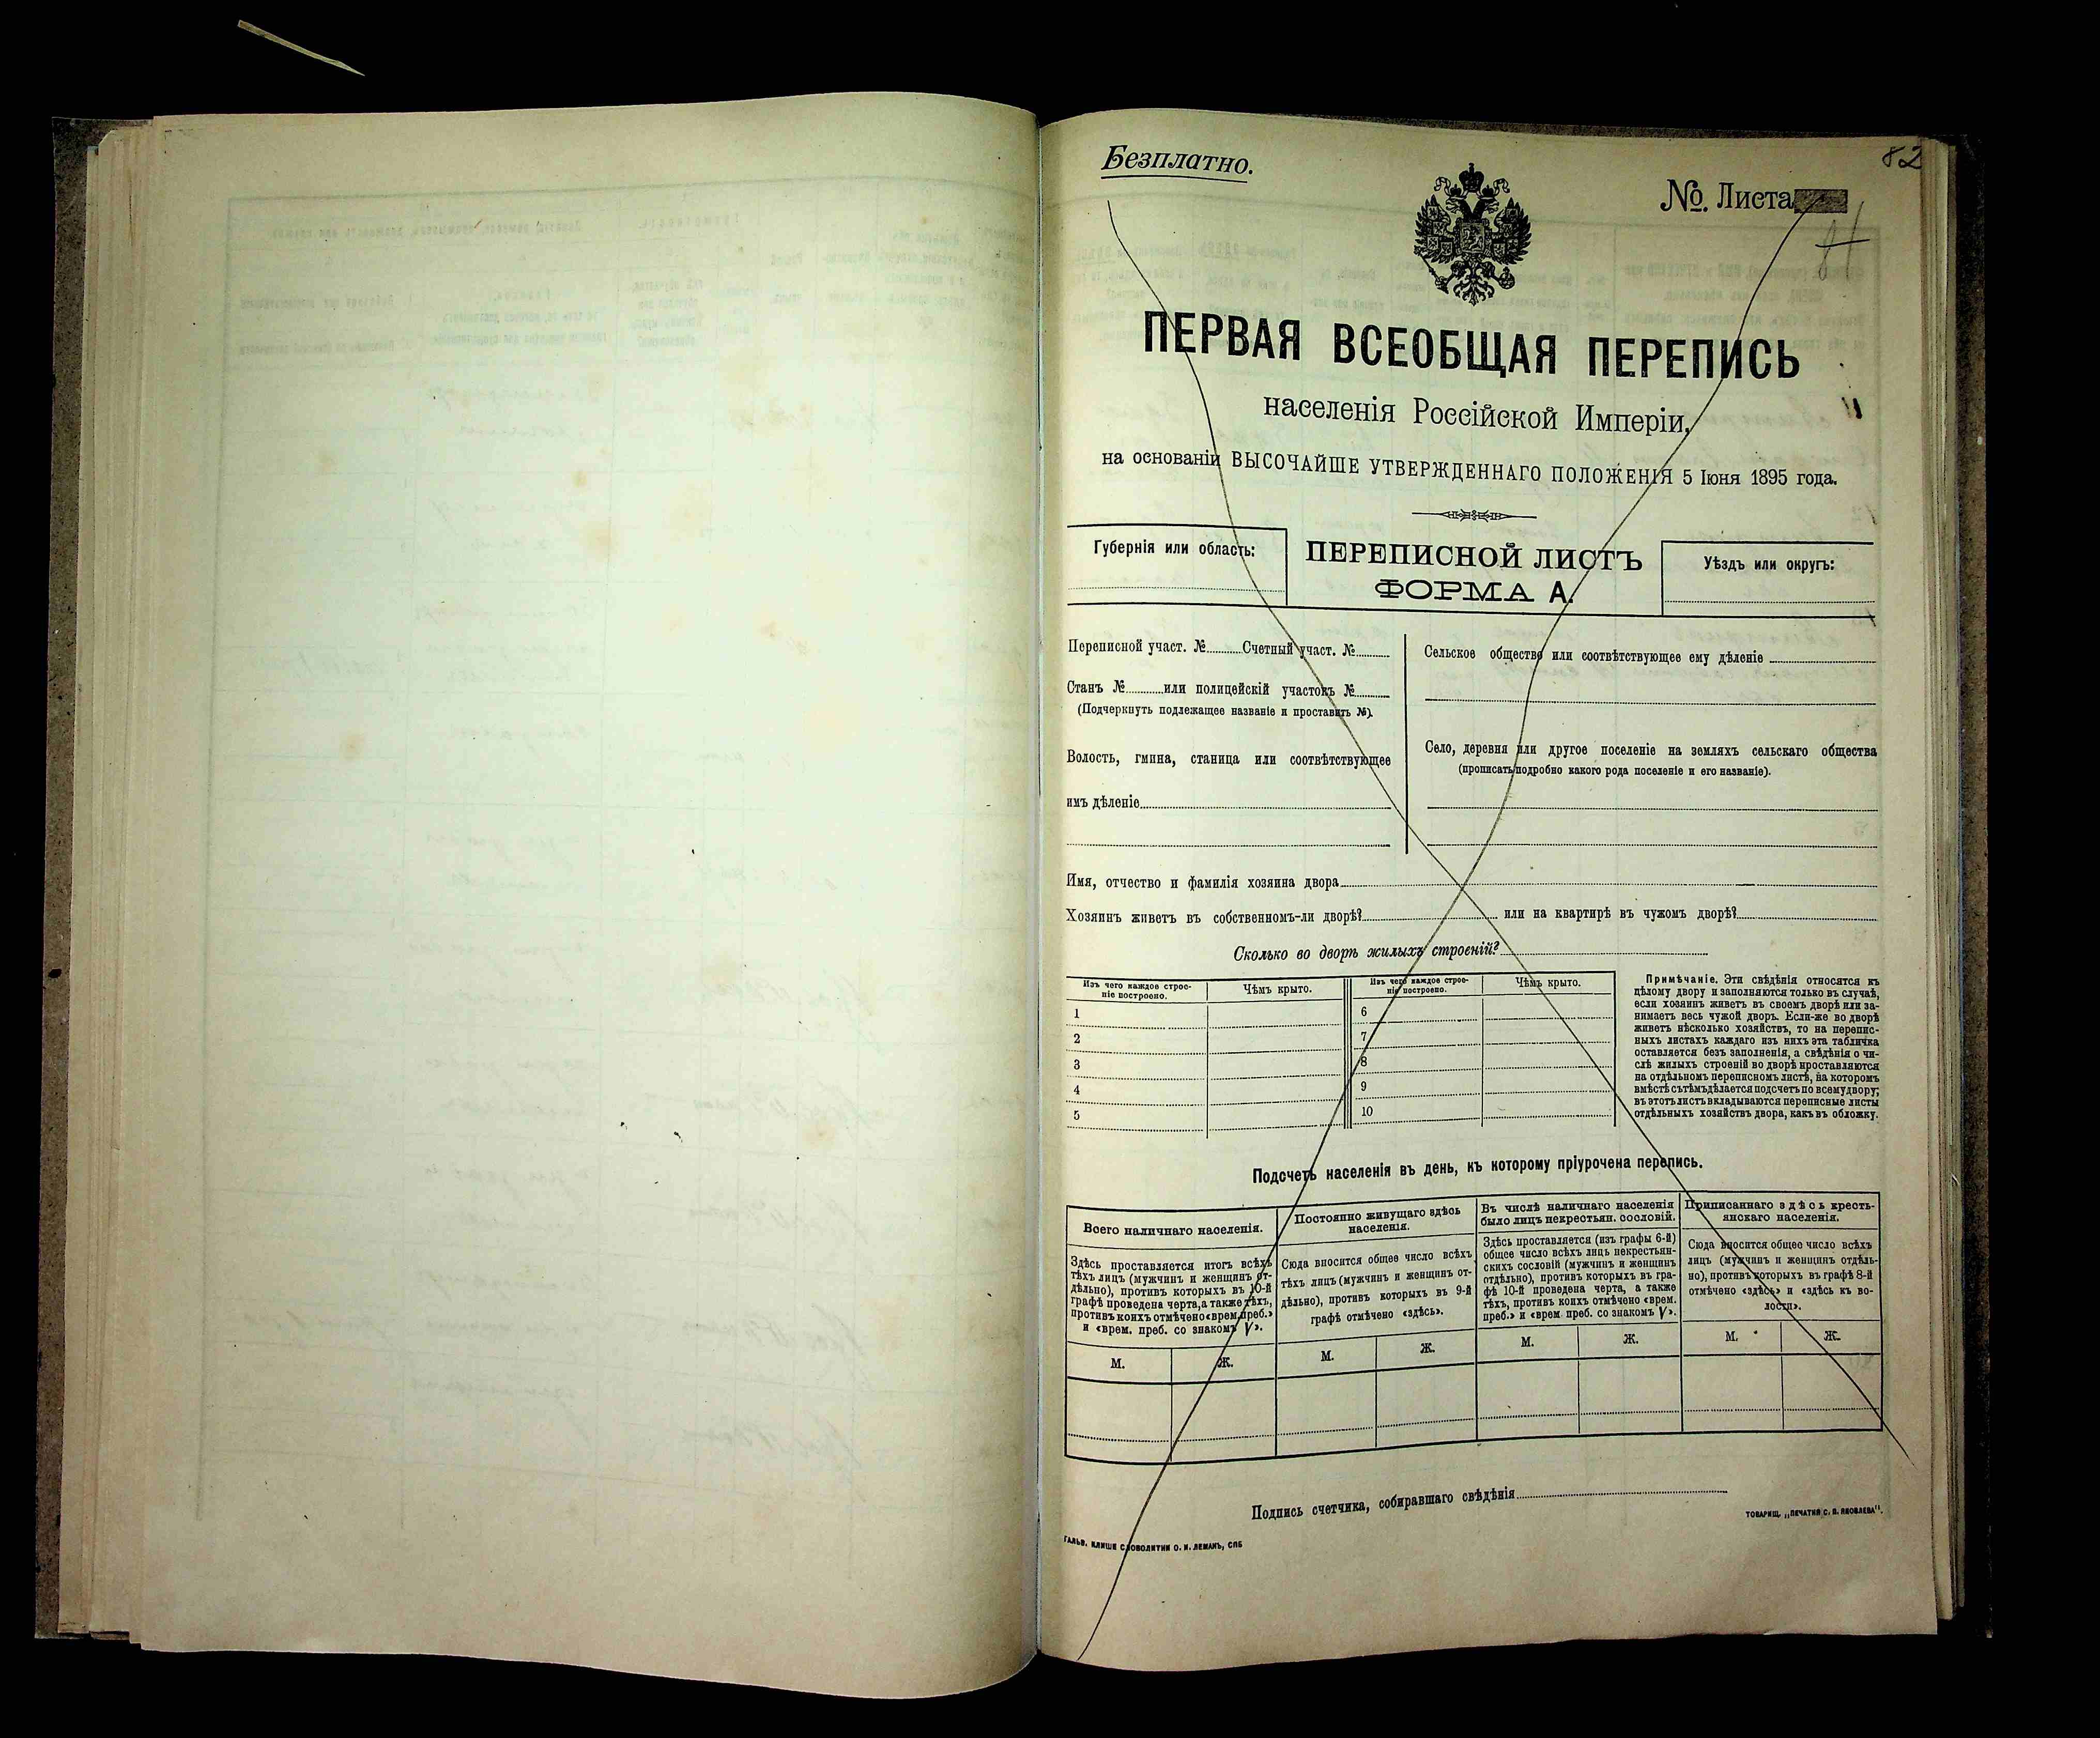 82
Безплатно.
№. Листа
81
ПЕРВАЯ ВСЕОБЩАЯ ПЕРЕПИСЬ
населенія Россійской Имперіи,
на основаніи ВЫСОЧАЙШЕ УТВЕРЖДЕННАГО ПОЛОЖЕНІЯ 5 Іюня 1895 года.
Губернія или область:
ПЕРЕПИСНОЙ ЛИСТЪ
ФОРМА А.
Уѣздъ или округъ:
Переписной участ. № Счетный участ. №
Станъ № или полицейскій участокъ №
(Подчеркнуть подлежащее названіе и проставить №).
Волость, гмина, станица или соотвѣтствующее
имъ дѣленіе
Сельское общество или соотвѣтствующее ему дѣленіе
Село, деревня или другое поселеніе на земляхъ сельскаго общества
(прописать подробно какого рода поселеніе и его названіе).
Имя, отчество и фамилія хозяина двора
Хозяинъ живетъ въ собственномъ-ли дворѣ? или на квартирѣ въ чужомъ дворѣ?
Сколько во дворѣ жилыхъ строеній?
Изъ чего каждое строе-
ніе построено.
Чѣмъ крыто.
1
2
3
4
5
Изъ чего каждое строе-
ніе построено.
Чѣмъ крыто.
6
7
8
9
10
Примѣчаніе. Эти свѣдѣнія относятся къ
цѣлому двору и заполняются только въ случаѣ,
если хозяинъ живетъ въ своемъ дворѣ или за-
нимаетъ весь чужой дворъ. Если-же во дворѣ
живетъ нѣсколько хозяйствъ, то на перепис-
ныхъ листахъ каждаго изъ нихъ эта табличка
оставляется безъ заполненія, а свѣдѣнія о чи-
слѣ жилыхъ строеній во дворѣ проставляются
на отдѣльномъ переписномъ листѣ, на которомъ
вмѣстѣ съ тѣмъ дѣлается подсчетъ по всему двору;
въ этотъ листъ вкладываются переписные листы
отдѣльныхъ хозяйствъ двора, какъ въ обложку.
Подсчетъ населенія въ день, къ которому пріурочена перепись.
Всего наличнаго населенія.
Здѣсь проставляется итогъ всѣхъ
тѣхъ лицъ (мужчинъ и женщинъ от-
дѣльно), противъ которыхъ въ 10-й
графѣ проведена черта, а также тѣхъ,
противъ коихъ отмѣчено «врем. преб.»
и «врем. преб. со знакомъ V».
М. Ж.
Постоянно живущаго здѣсь
населенія.
Сюда вносится общее число всѣхъ
тѣхъ лицъ (мужчинъ и женщинъ от-
дѣльно), противъ которыхъ въ 9-й
графѣ отмѣчено «здѣсь».
М. Ж.
Въ числѣ наличнаго населенія
было лицъ некрестьян. сословій.
Здѣсь проставляется (изъ графы 6-й)
общее число всѣхъ лицъ некрестьян-
скихъ сословій (мужчинъ и женщинъ
отдѣльно), противъ которыхъ въ гра-
фѣ 10-й проведена черта, а также
тѣхъ, противъ коихъ отмѣчено «врем.
преб.» и «врем. преб. со знакомъ V».
М. Ж.
Приписаннаго здѣсь кресть-
янскаго населенія.
Сюда вносится общее число всѣхъ
лицъ (мужчинъ и женщинъ отдѣль-
но), противъ которыхъ въ графѣ 8-й
отмѣчено «здѣсь» и «здѣсь къ во-
лости».
М. Ж.
Подпись счетчика, собиравшаго свѣдѣнія
ТОВАРИЩ. „ПЕЧАТНЯ С. П. ЯКОВЛЕВА".
ГАЛЬВ. КЛИШЕ СЛОВОЛИТНИ О. И. ЛЕМАНЪ, СПБ